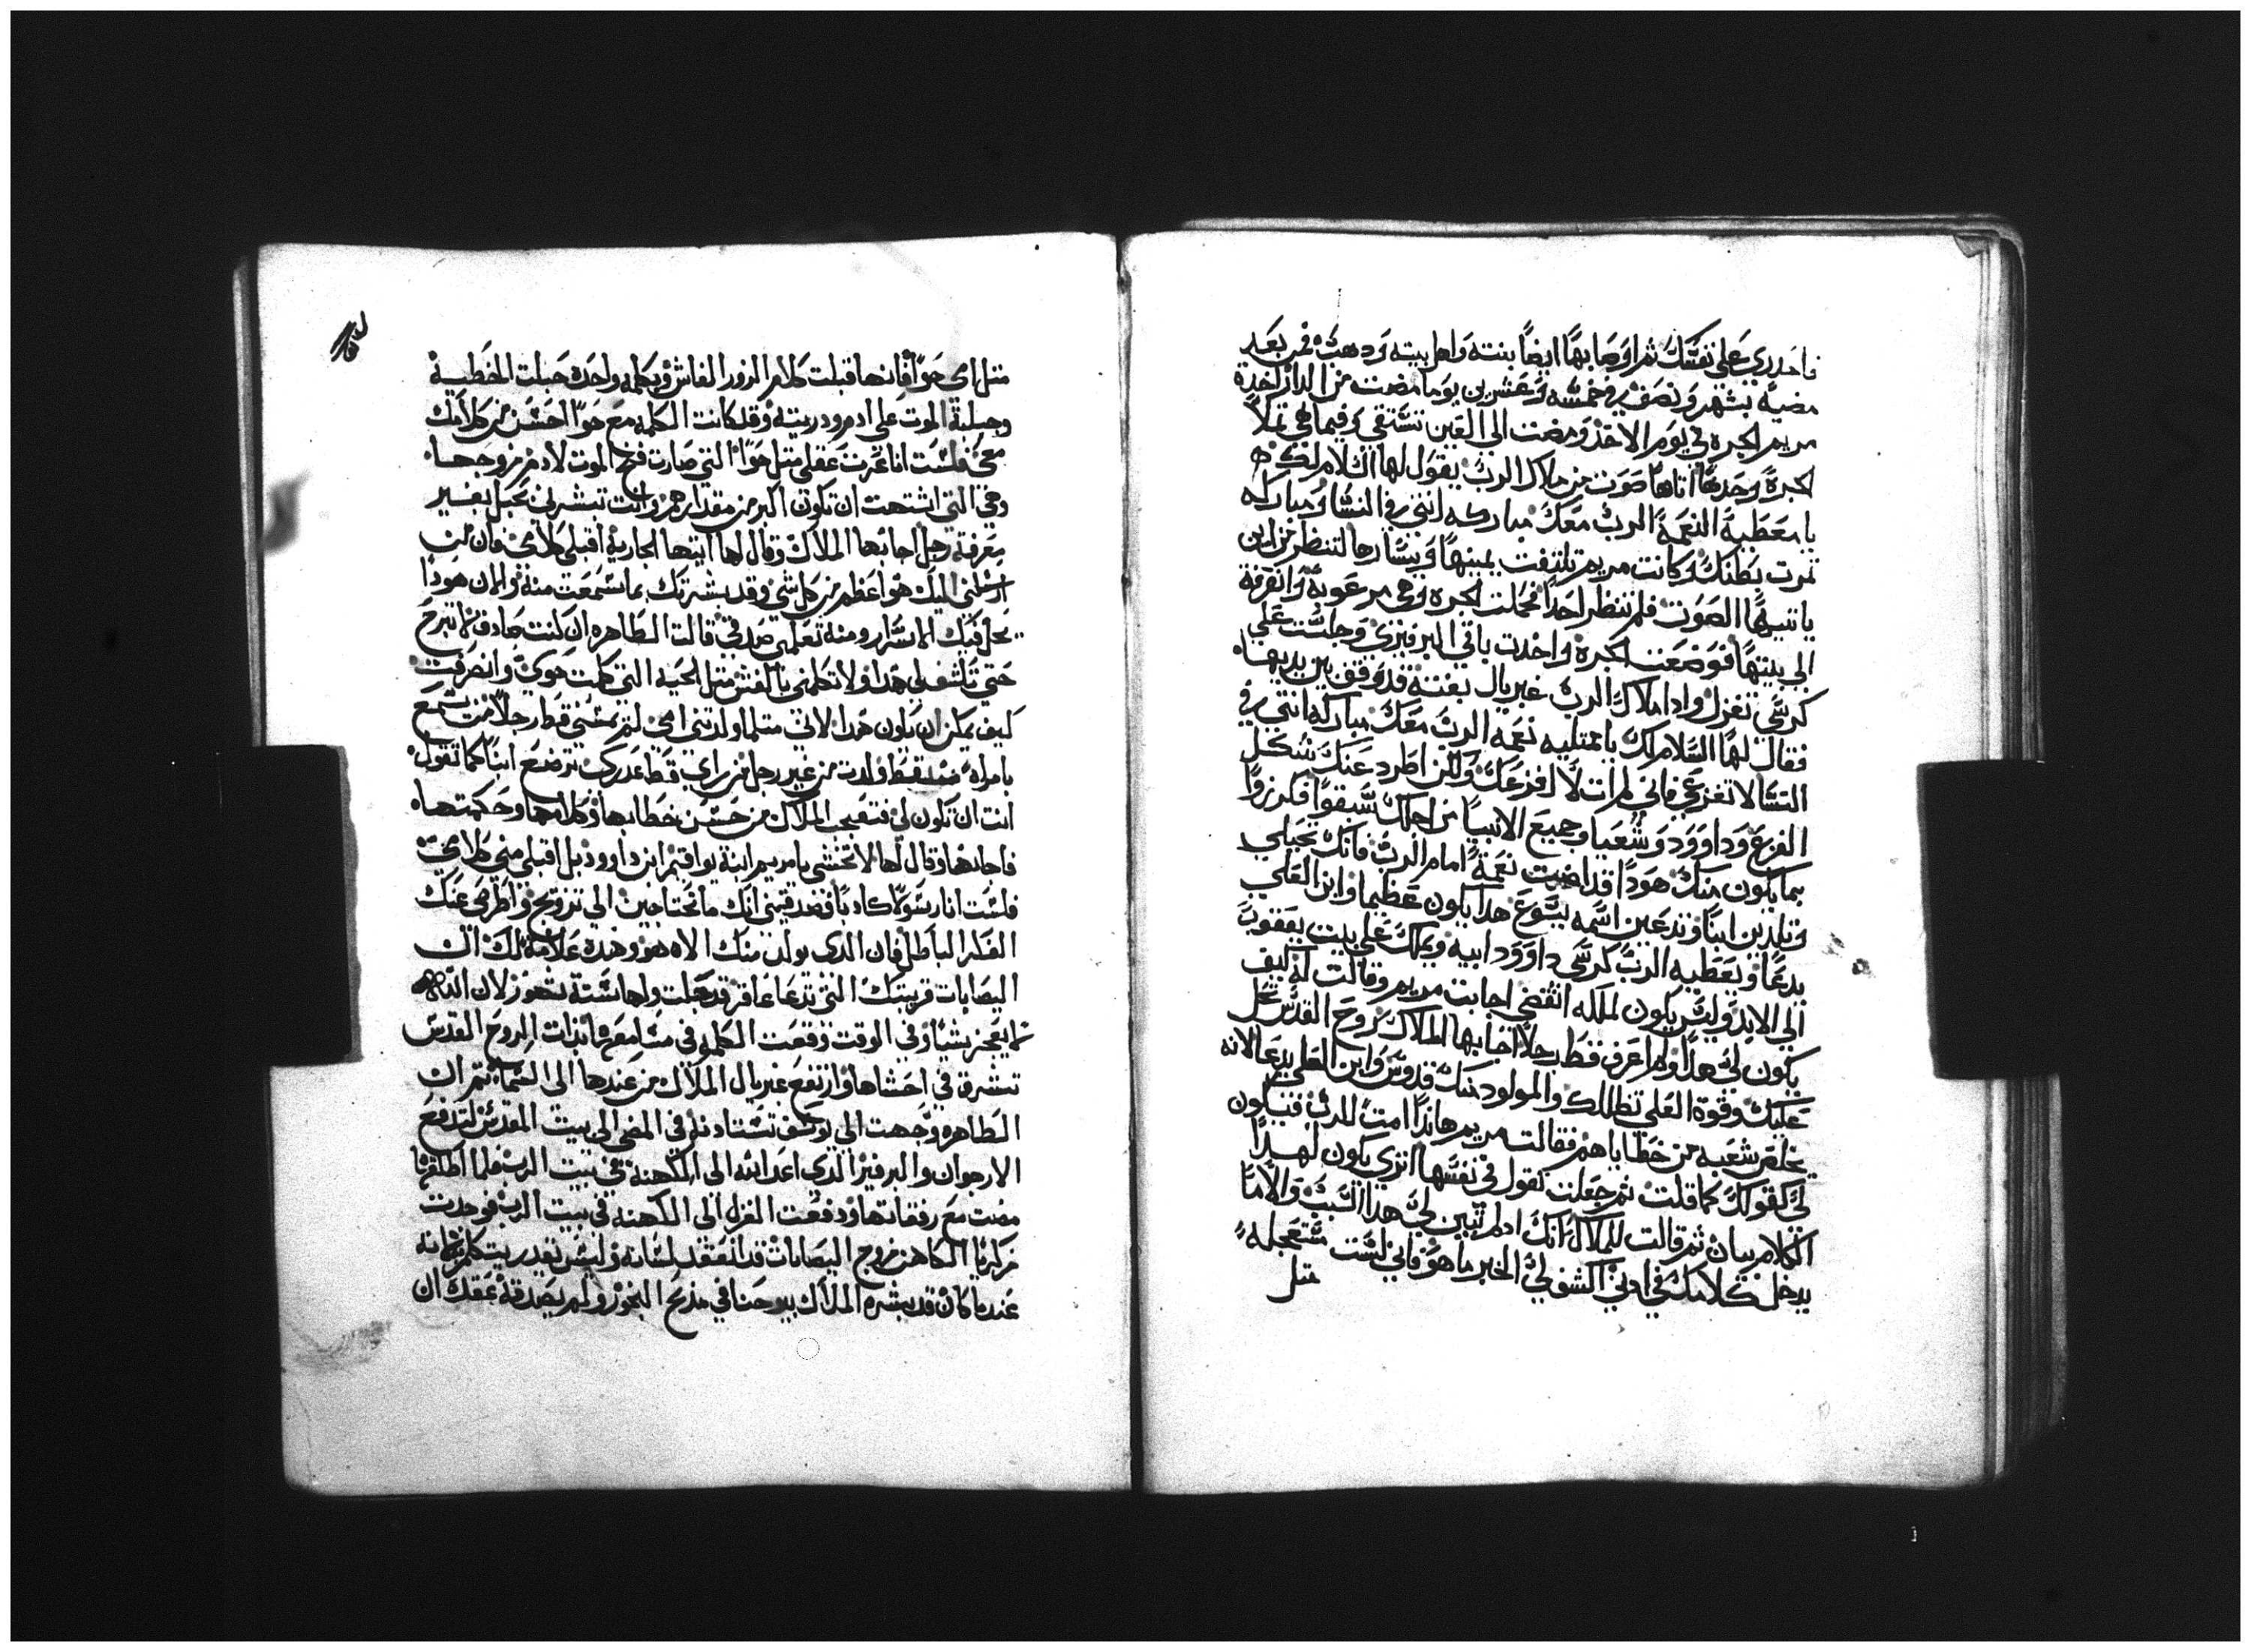 فاحدري على نفسك ثم اوصا بها ايضا بنته واهل بيته ودهب فمن بعد
مضيه بشهر ونصف في خمسه وعشرين يوما مضت من الدار اخدة
مريم الجره في يوم الاحد ومضت الى العين تستقي وفيما هي تملا
الجرة وحدها اتاها صوت من ملاك الرب يقول لها السلام لك
يا معطية النعمة الرب معك مباركه انتي في النسا ومباركه
تمرت بطنك وكانت مريم تلتفت يمينها ويسارها لتنظر من اين
ياتيها الصوت فلم تنظر احدا فحملت الجره وهي مرعوبة وانصرفة
الى بيتها فوضعت الجرة واخدت باقي البرفيري وجلست على
كرسي تغزل وادا ملاك الرب غبريال بغتة قد وقف بين يديها
فقال لها السلام لك يا ممتليه نعمه الرب معك مباركه انتي في
النسا لا تفزعي فاني لم ات لافزعك ولكن اطرد عنك شكل
الفزع وداوود وشعيا وجميع الانبيا من اجلك سبقوا فكرزوا
بما يكون منك هودا قد اصبت نعمة امام الرب فانك تحبلي
وتلدين ابنا وتدعين اسمه يسوع هدا يكون عظيما وابن العلي
يدعا ويعطيه الرب كرسي داوود ابيه ويملك على بيت يعقوب
الى الابد وليس يكون لملكه انقضى اجابت مريم وقالت له كيف
يكون لي هدا ولم اعرف قط رجلا اجابها الملاك روح القدس تحل
عليك وقوة العلي تظللك والمولود منك قدوس وابن العلي يدعا لانه
يخلص شعبه من خطاياهم فقالت مريم هاندا امت للرب فيكون
لي كقولك كما قلت ثم جعلت تقول في نفسها اترى يكون لهدا
الكلام بيان ثم قالت للملاك انك ادا لم تبين لي هدا السبب والا ما
يدخل كلامك في ادني اكشف لي الخبر ما هو فاني لست مستعجله
متل
متل امي حوا فانها قبلت كلام الزور الغاش وبكلمه واحده حبلت الخطيية
وجبلية الموت على ادم ودريته وقد كانت الكلمه مع حوا احسن من كلامك
معي فلست انا غرت عقلي متل حوا التي صارت فخ الموت لادم زوجها
وهي التي اشتهت ان تكون اكبر من مقدارهم وانت تبشرني بحبل بغير
معرفة رجل اجابها الملاك وقال لها ايتها الجارية اقبلي كلامي فان من
ارسلني اليك هو اعظم من كل شي وقد بشرتك بما سمعت منه والان هودا
يحل فيك الاسرار ومنه تعلمي صدقي قالت الطاهره ان كنت صادق لا تبرح
حتى تكشف لي هدا ولا تكلمني بالغش متل الحيه التي كلمت حوى وانصرفت
كيف يمكن ان يكون هدا لاني متلما ولدتني امي لم يمسني قط رجلا من سمع
بامراه قط ولدت من غير رجل من راى قط عدرى ترضع ابنا كما تقول
انت ان تكون لي فتعجب الملاك من حسن خطابها وكلامها وحكمتها
فاجابها وقال لها لا تخشي يا مريم ابنة يواقيم ابن داوود بل اقبلي مني كلامي
فلست انا رسولا كادبا فصدقيني انك ما تحتاجين الى تزويج واطرحي عنك
الفكر الباطل فان الدي يولد منك الاه هو وهده علامة لك ان
اليصابات قريبتك التي تدعا عاقر قد حبلت ولها ستة شهور لان الله
لا يعجز شيا وفي الوقت وقعت الكلمه في مسامعها بدات الروح القدس
تشرق في احشاها وارتفع غبريال الملاك من عندها الى السماء ثم ان
الطاهره وجهت الى يوسف تستادنه في المضي الى بيت المقدس لتدفع
الارجوان والبرفير الدي اعدانه الى الكهنة في بيت الرب فلما اطلقها
مضت مع رفقاتها ودفعت الغزل الى الكهنة في بيت الرب فوجدت
زكريا الكاهن زوج اليصابات قد انعقد لسانه وليس يقدر يتكلم لانه
عندما كان قد بشره الملاك بيوحنا في مدبح البخور ولم يصدقه عقد ان